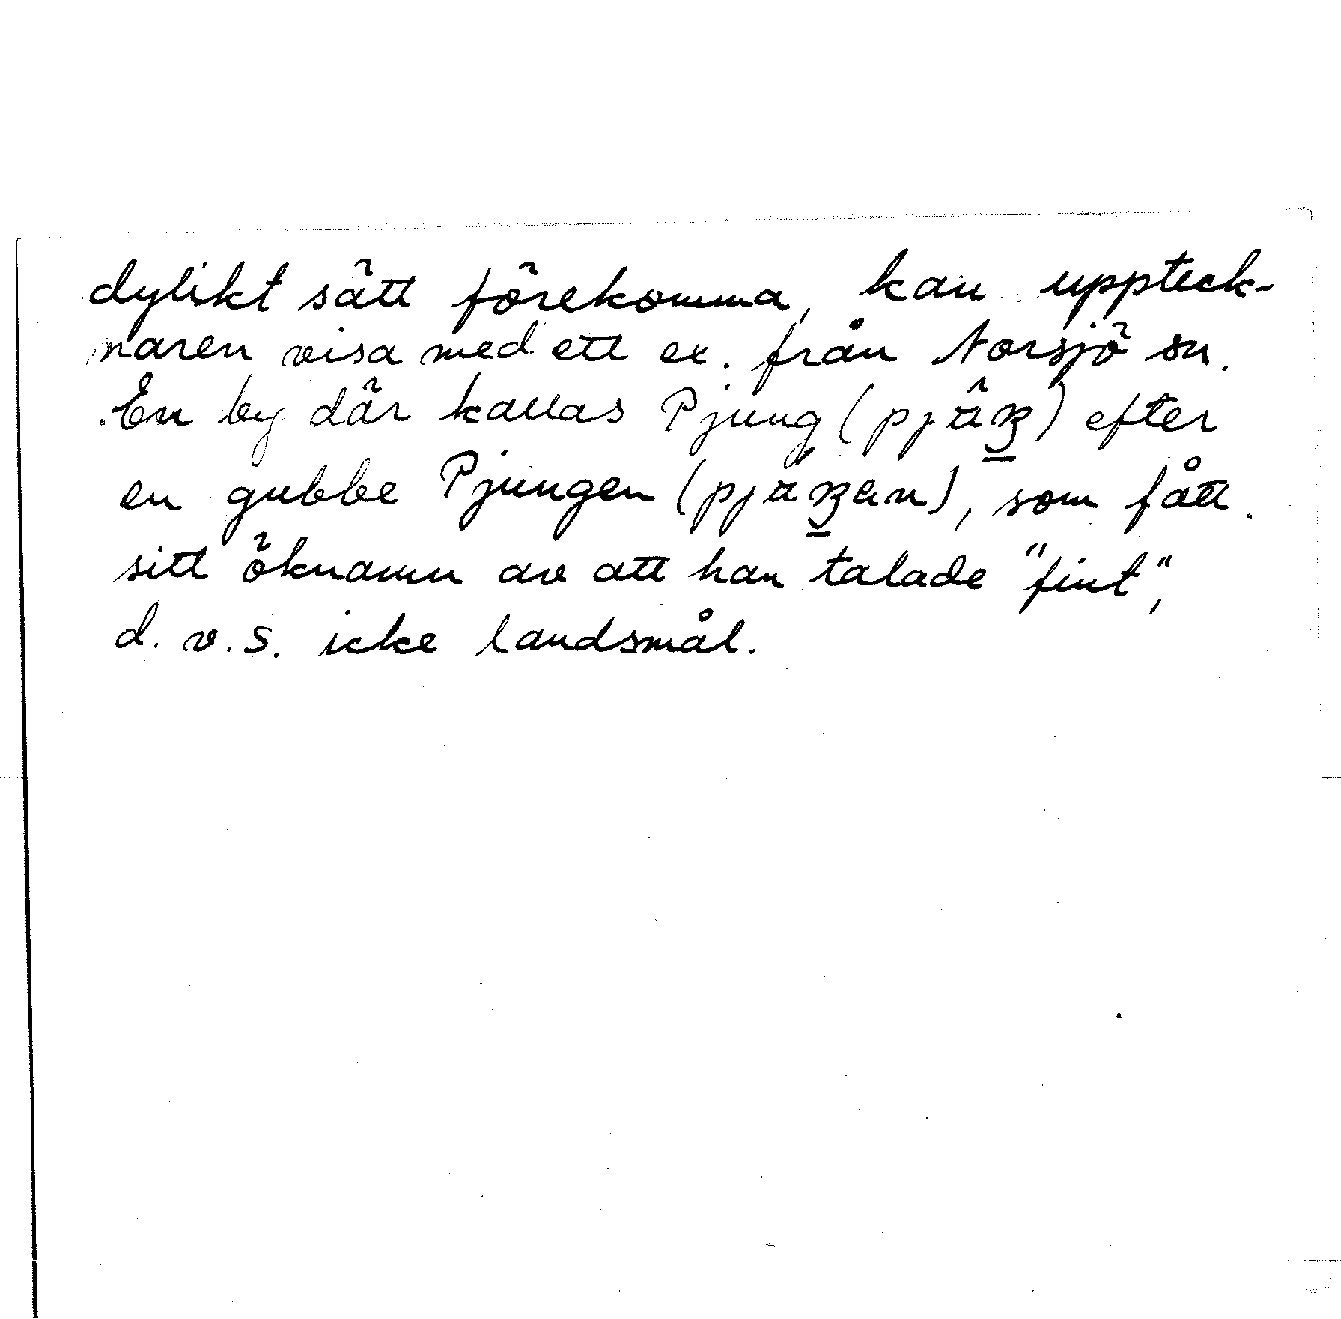 dylikt sätt förekomma, kan uppteck-
naren visa med ett ex. från Norsjö sn.
En by där kallas Pjung () efter
en gubbe Pjungen (), som fått
sitt öknamn av att han talade "fint",
d.v.s. icke landsmål.